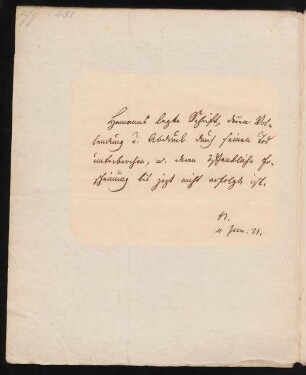 Hermanns letzte Schrift, deren Vol-
lendung u. Abdruck durch seinen Tod
unterbrochen, u. deren öffentliche Er-
scheinung bis jezt nicht erfolgt ist.
4 Jun. 21.